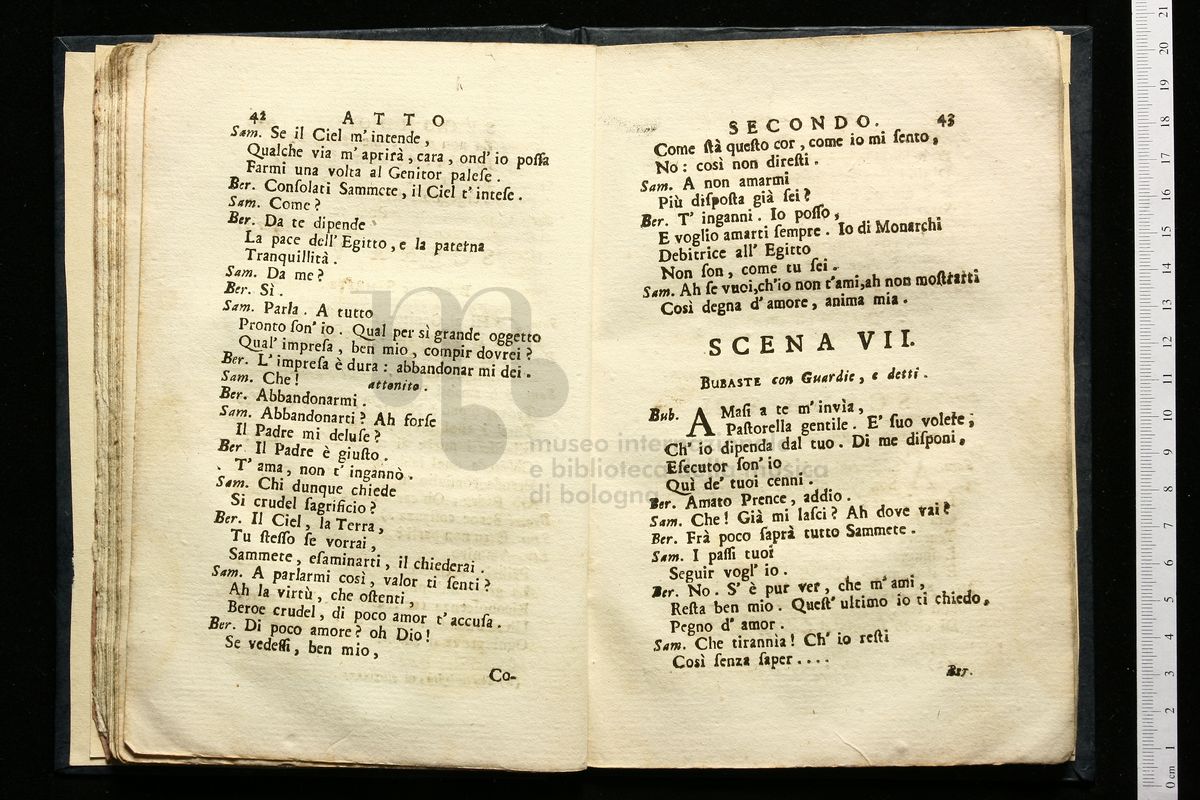 42 ATTO
Sam. Se il Ciel m'intende,
Qualche via m'aprirà, cara, ond'io poſſa
Farmi una volta al Genitor paleſe.
Ber. Conſolati Sammete, il Ciel t'inteſe.
Sam. Come?
Ber. Da te dipende
La pace dell'Egitto, e la paterna
Tranquillità.
Sam. Da me?
Ber. Sì.
Sam. Parla. A tutto
Pronto ſon' io. Qual per sì grande oggetto
Qual' impreſa, ben mio, compir dovrei?
Ber. L'impreſa è dura: abbandonar mi dei.
Sam. Che! attonito.
Ber. Abbandonarmi.
Sam. Abbandonarti? Ah forſe
Il Padre mi deluſe?
Ber. Il Padre è giuſto.
T'ama, non t'ingannò.
Sam. Chi dunque chiede
Sì crudel ſagrificio?
Ber. Il Ciel, la Terra,
Tu ſteſſo ſe vorrai,
Sammete, eſaminarti, il chiederai.
Sam. A parlarmi così, valor ti ſenti?
Ah la virtù, che oſtenti,
Beroe crudel, di poco amor t'accuſa.
Ber. Di poco amore? oh Dio!
Se vedeſſi, ben mio,
Co-
SECONDO. 43
Come ſtà queſto cor, come io mi ſento,
No: così non direſti.
Sam. A non amarmi
Più diſpoſta già ſei?
Ber. T' inganni. Io poſſo,
E voglio amarti ſempre. Io di Monarchi
Debitrice all' Egitto
Non ſon, come tu ſei.
Sam. Ah ſe vuoi, ch'io non t'ami, ah non moſtrarti
Così degna d'amore, anima mia.
SCENA VII.
BUBASTE con Guardie, e detti.
Bub. AMaſi a te m'invìa,
Paſtorella gentile. E' ſuo volere;
Ch' io dipenda dal tuo. Di me diſponi,
Eſecutor ſon' io
Quì de' tuoi cenni.
Ber. Amato Prence, addio.
Sam. Che! Già mi laſci? Ah dove vai?
Ber. Frà poco ſaprà tutto Sammete.
Sam. I paſſi tuoi
Seguir vogl' io.
Ber. No. S' è pur ver, che m'ami,
Reſta ben mio. Queſt' ultimo io ti chiedo,
Pegno d'amor.
Sam. Che tirannia! Ch' io reſti
Così ſenza ſaper....
Ber.
museo internazionale
e biblioteca della musica
di bologna